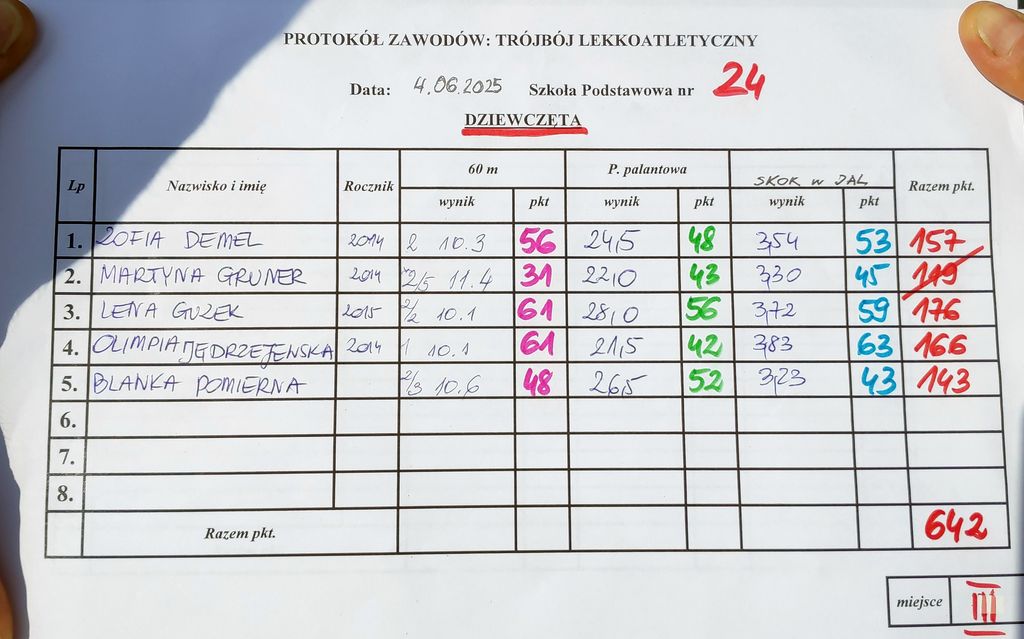 PROTOKÓŁ ZAWODÓW: TRÓJBÓJ LEKKOATLETYCZNY
Data: 4.06.2025 Szkoła Podstawowa nr 24
DZIEWCZĘTA
Lp Nazwisko i imię Rocznik 60 m P. palantowa SKOK W DAL Razem pkt.
wynik pkt wynik pkt wynik pkt
1. ZOFIA DEMEL 2014 2 10.3 56 24,5 48 3,54 53 157
2. MARTYNA GRUNER 2014 2/5 11.4 31 22,0 43 3,30 45 119
3. LENA GUZEK 2015 2/2 10.1 61 28,0 56 3,72 59 176
4. OLIMPIA JĘDRZEJEWSKA 2014 1 10.1 61 21,5 42 3,83 63 166
5. BLANKA POMIERNA 2/3 10.6 48 26,5 52 3,23 43 143
6.
7.
8.
Razem pkt. 642
miejsce III